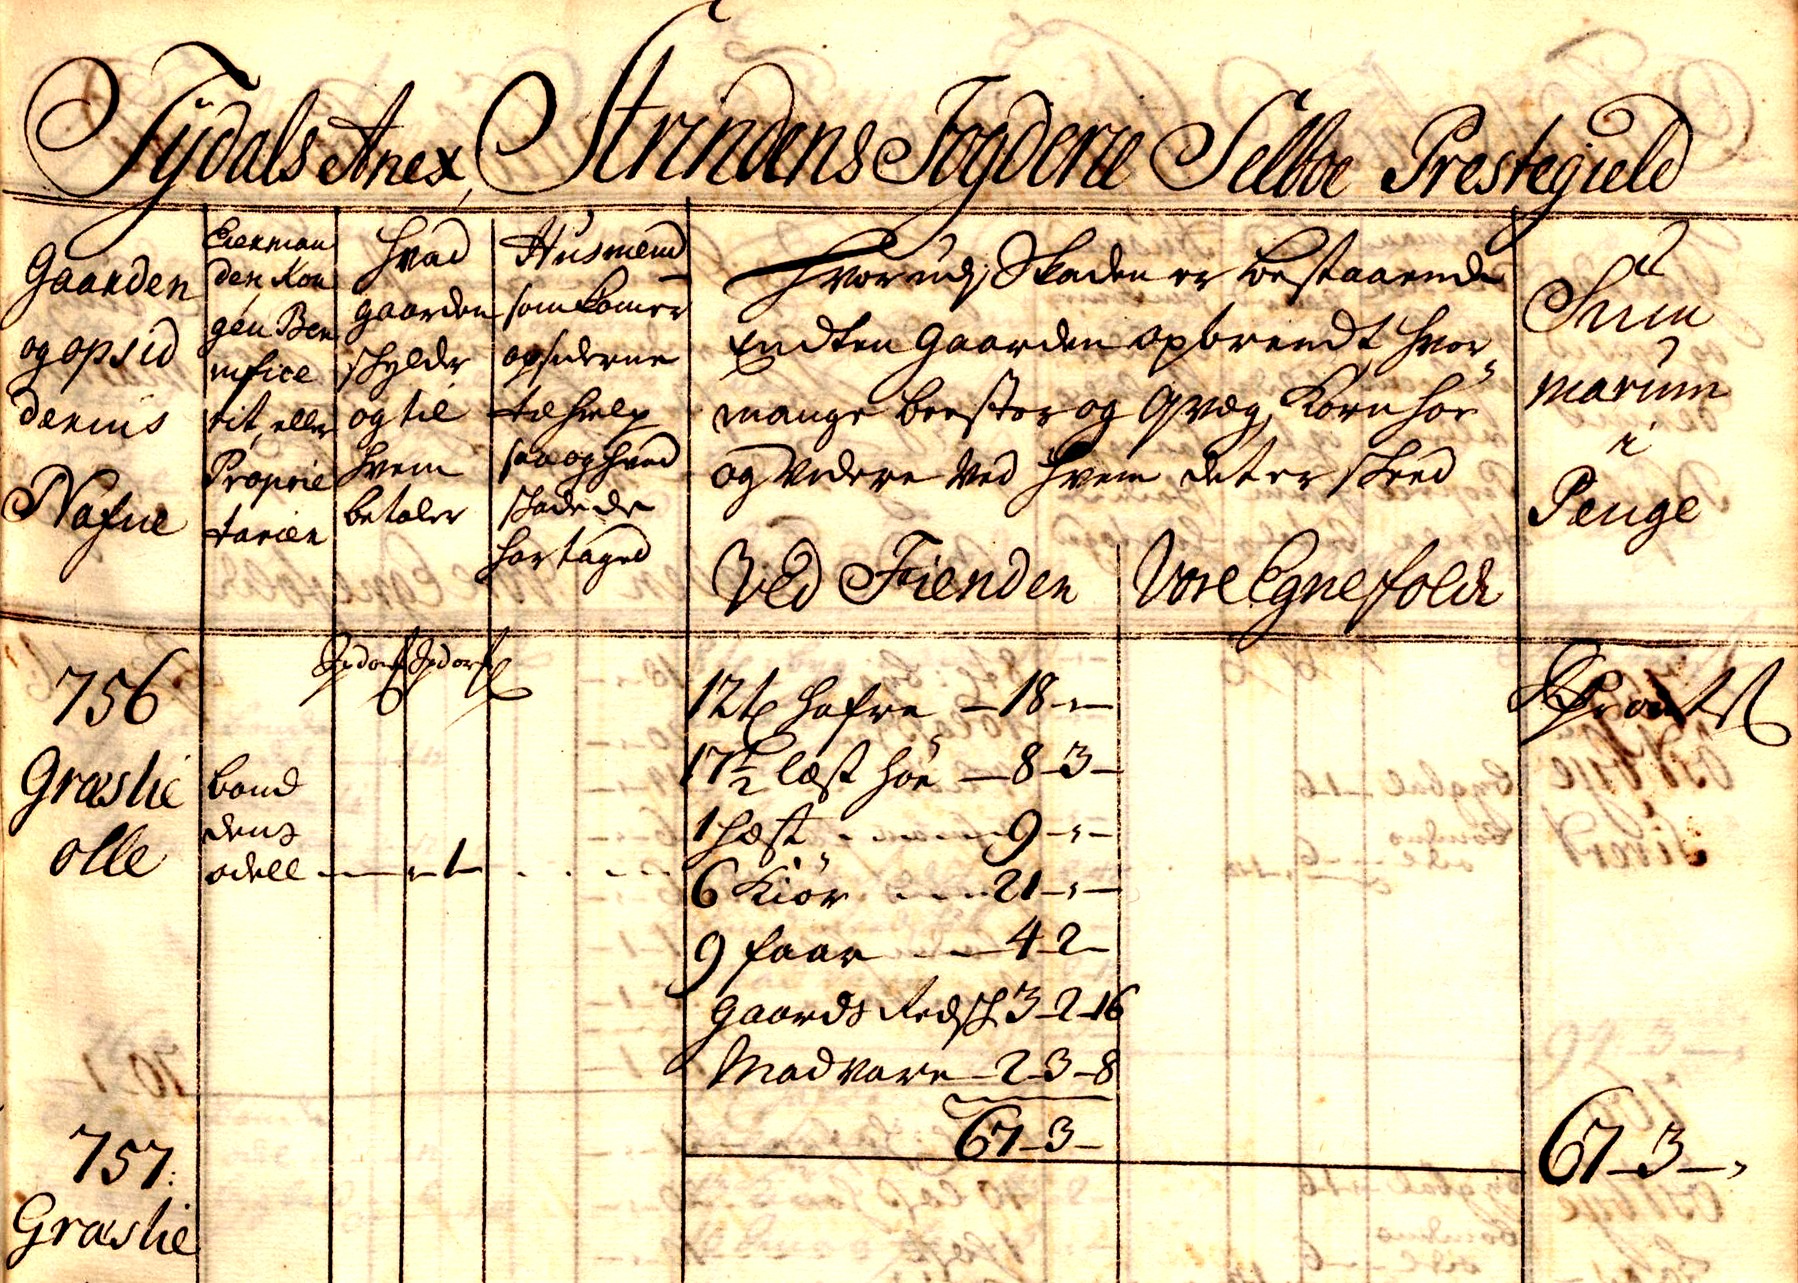 Tÿdals Anex, Strindens Fogderie Selboe Prestegield
Gaarden
og opsid
dernis
Nafne
Eierman
den Kon
gen Ben
nifice
tit, eller
Proprie
tarien
Hvad
gaarden
skylder
og til
hvem
betaler
Husmend
som komer
opsiderne
til hielp
saa og hvad
skade de
har taged
Hvor udj Skaden er bestaaende
Endten Gaarden opbrendt hvor
mange beester og Qvæg, Korn høe
og videre ved hvem det er skeed
Ved Fienden
Vore Egne folck
Sum
marum
i
Penge
756
Græslie
olle
bond
dens
odell
1
12 t hafre - 18 - -
17½ læst høe - 8 - 3 -
1 hæst - 9 - -
6 Kiør - 21 - -
9 faar - 4 - 2 -
Gaards Redsk 3 - 2 - 16
Madvare - 2 - 3 - 8
67 - 3 -
67 - 3 -
757:
Græslie